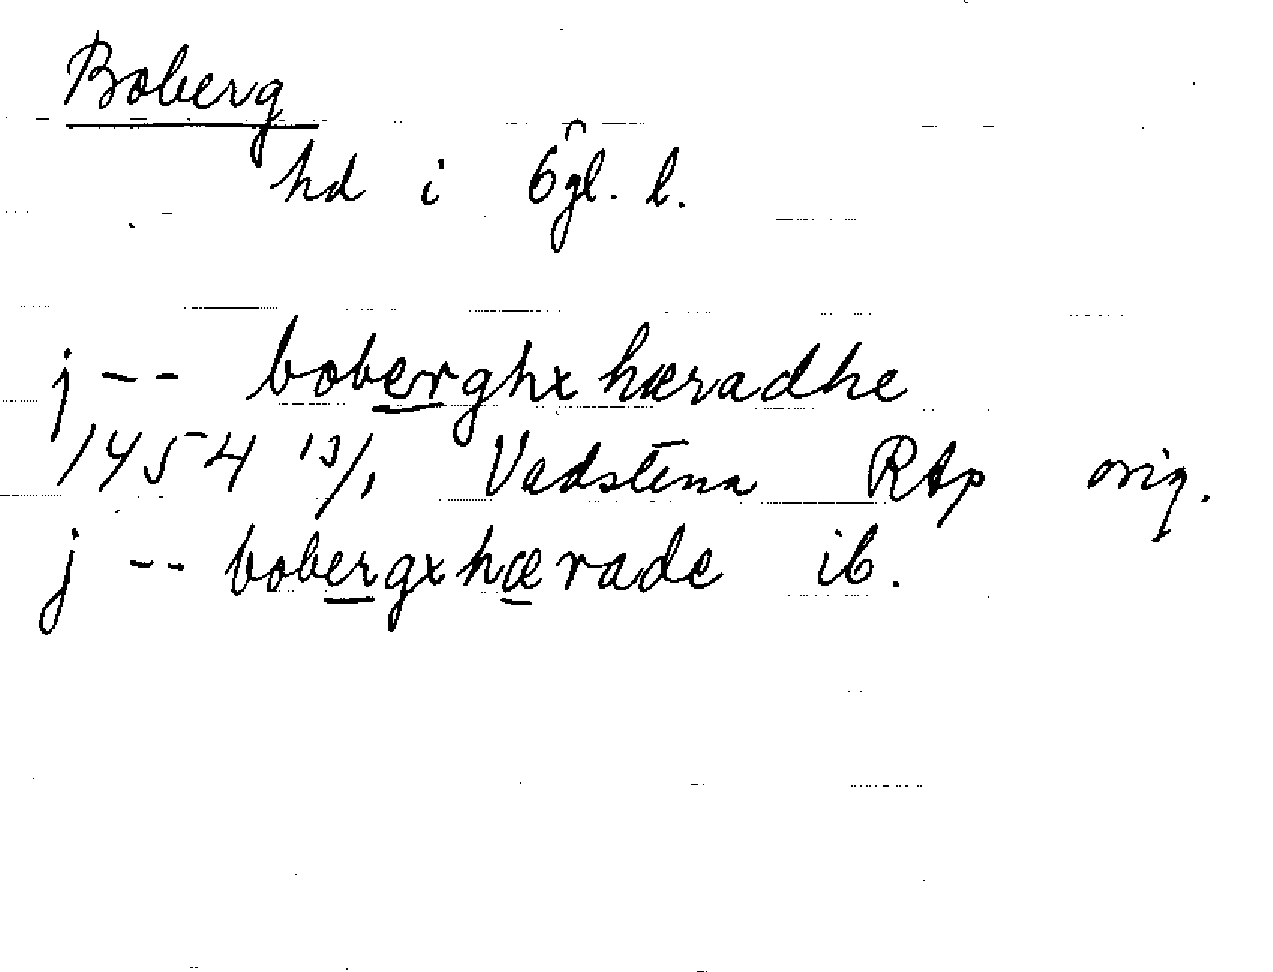 Boberg
hd i Ögl. l.
j -- boberghx hæradhe
1454 13/1 Vadstena RAp orig.
j -- bobergx hærade ib.